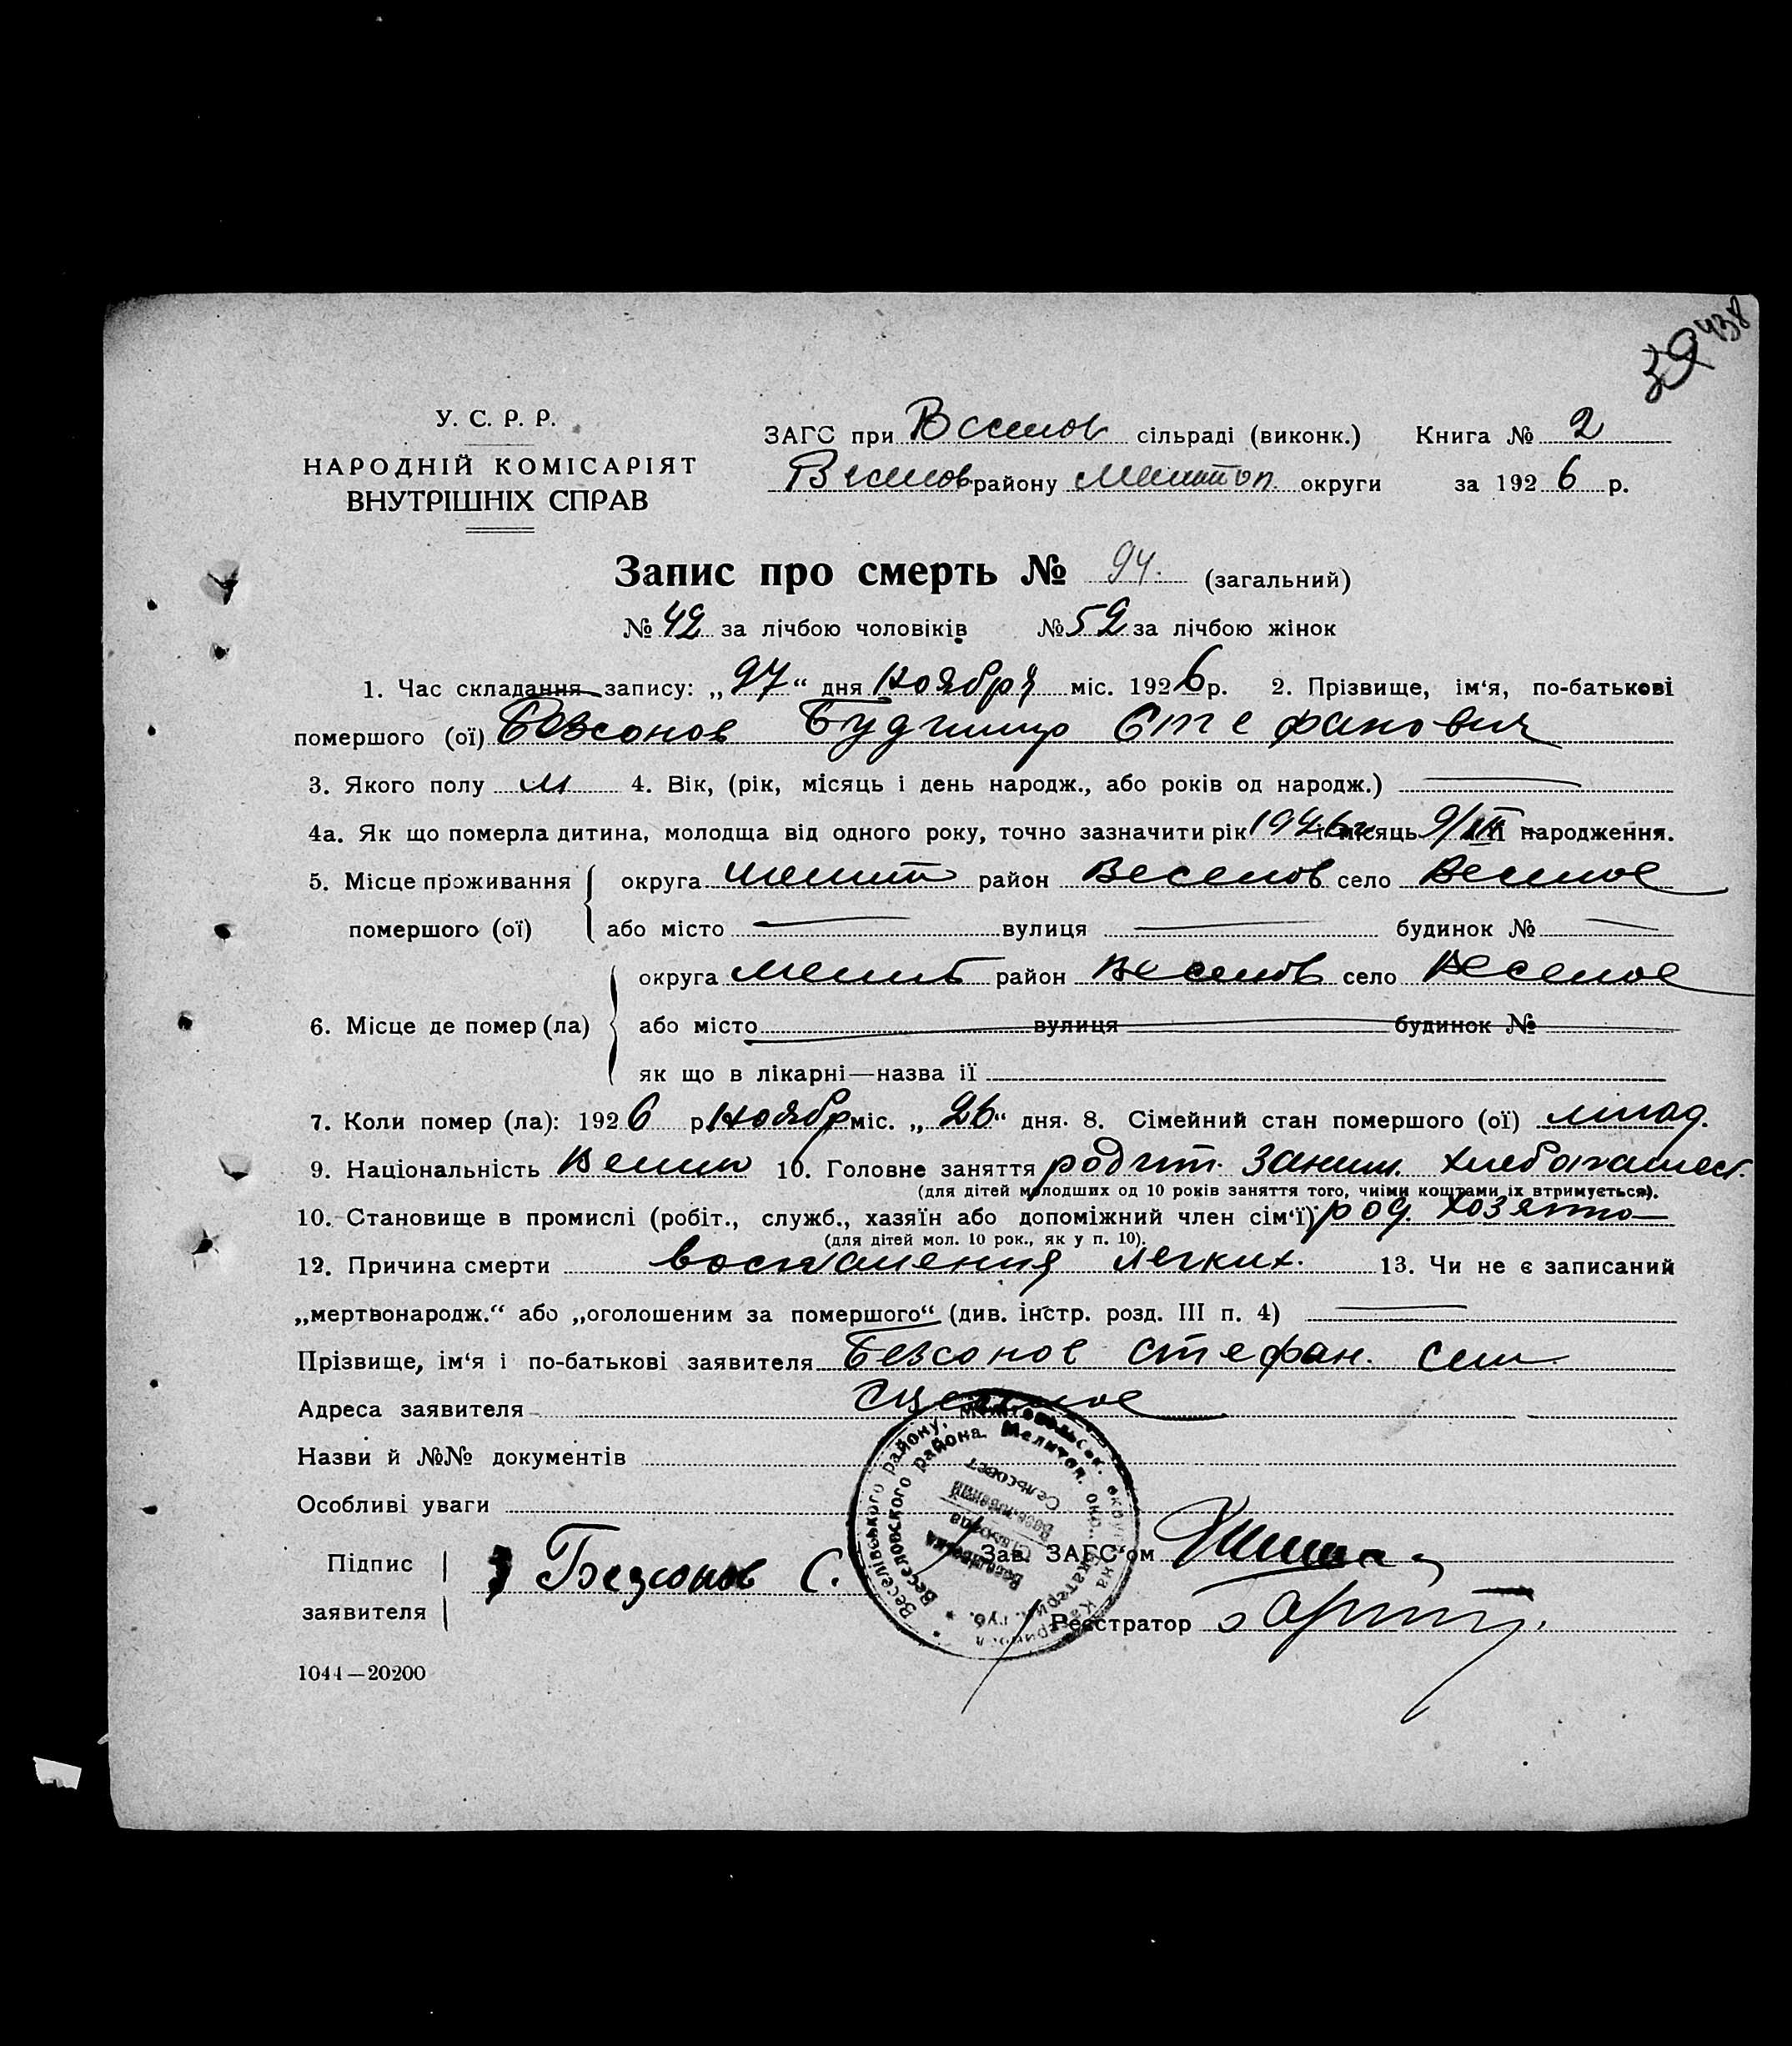 39 438
У. С. Р. Р.
НАРОДНІЙ КОМІСАРІЯТ
ВНУТРІШНІХ СПРАВ
ЗАГС при Веселов сільраді (виконк.) Книга № 2
Веселов району Мелитоп. округи за 1926 р.
Запис про смерть № 94. (загальний)
№ 42 за лічбою чоловіків № 52 за лічбою жінок
1. Час складання запису: „27“ дня Ноября міс. 1926 р. 2. Прізвище, ім‘я, по-батькові
помершого (ої) Безсонов Стефанович
3. Якого полу м 4. Вік, (рік, місяць і день народж., або років од народж.)
4а. Як що померла дитина, молодша від одного року, точно зазначити рік 1926 г і місяць народження.
5. Місце проживання округа Мелит район Веселов село Веселое
помершого (ої) або місто вулиця будинок №
округа Мелит район Веселов село Веселое
6. Місце де помер (ла) або місто вулиця будинок №
як що в лікарні—назва ії
7. Коли помер (ла): 1926 р. Ноябр міс. „26“ дня. 8. Сімейний стан помершого (ої) млад.
9. Національність Велик 10. Головне заняття родит. Заним. хлебопашест.
(для дітей молодших од 10 років заняття того, чиїми коштами їх втримується).
10. Становище в промислі (робіт., служб., хазяїн або допоміжний член сім‘ї) род. хозяин
(для дітей мол. 10 рок., як у п. 10).
12. Причина смерти воспаления легких. 13. Чи не є записаний
„мертвонародж.“ або „оголошеним за помершого“ (див. інстр. розд. III п. 4)
Прізвище, ім‘я і по-батькові заявителя Безсонов Стефан. Сем.
Адреса заявителя
Назви й №№ документів
Особливі уваги
Підпис заявителя Безсонов С.
Зав. ЗАГС‘ом
Реєстратор
Веселівського району, Мелітопольськ. округи на Катериносл
Веселовского района Мелитоп. окр. Екатерин. губ.
Веселівська Сільрада
Веселовский Сельсовет
1044—20200